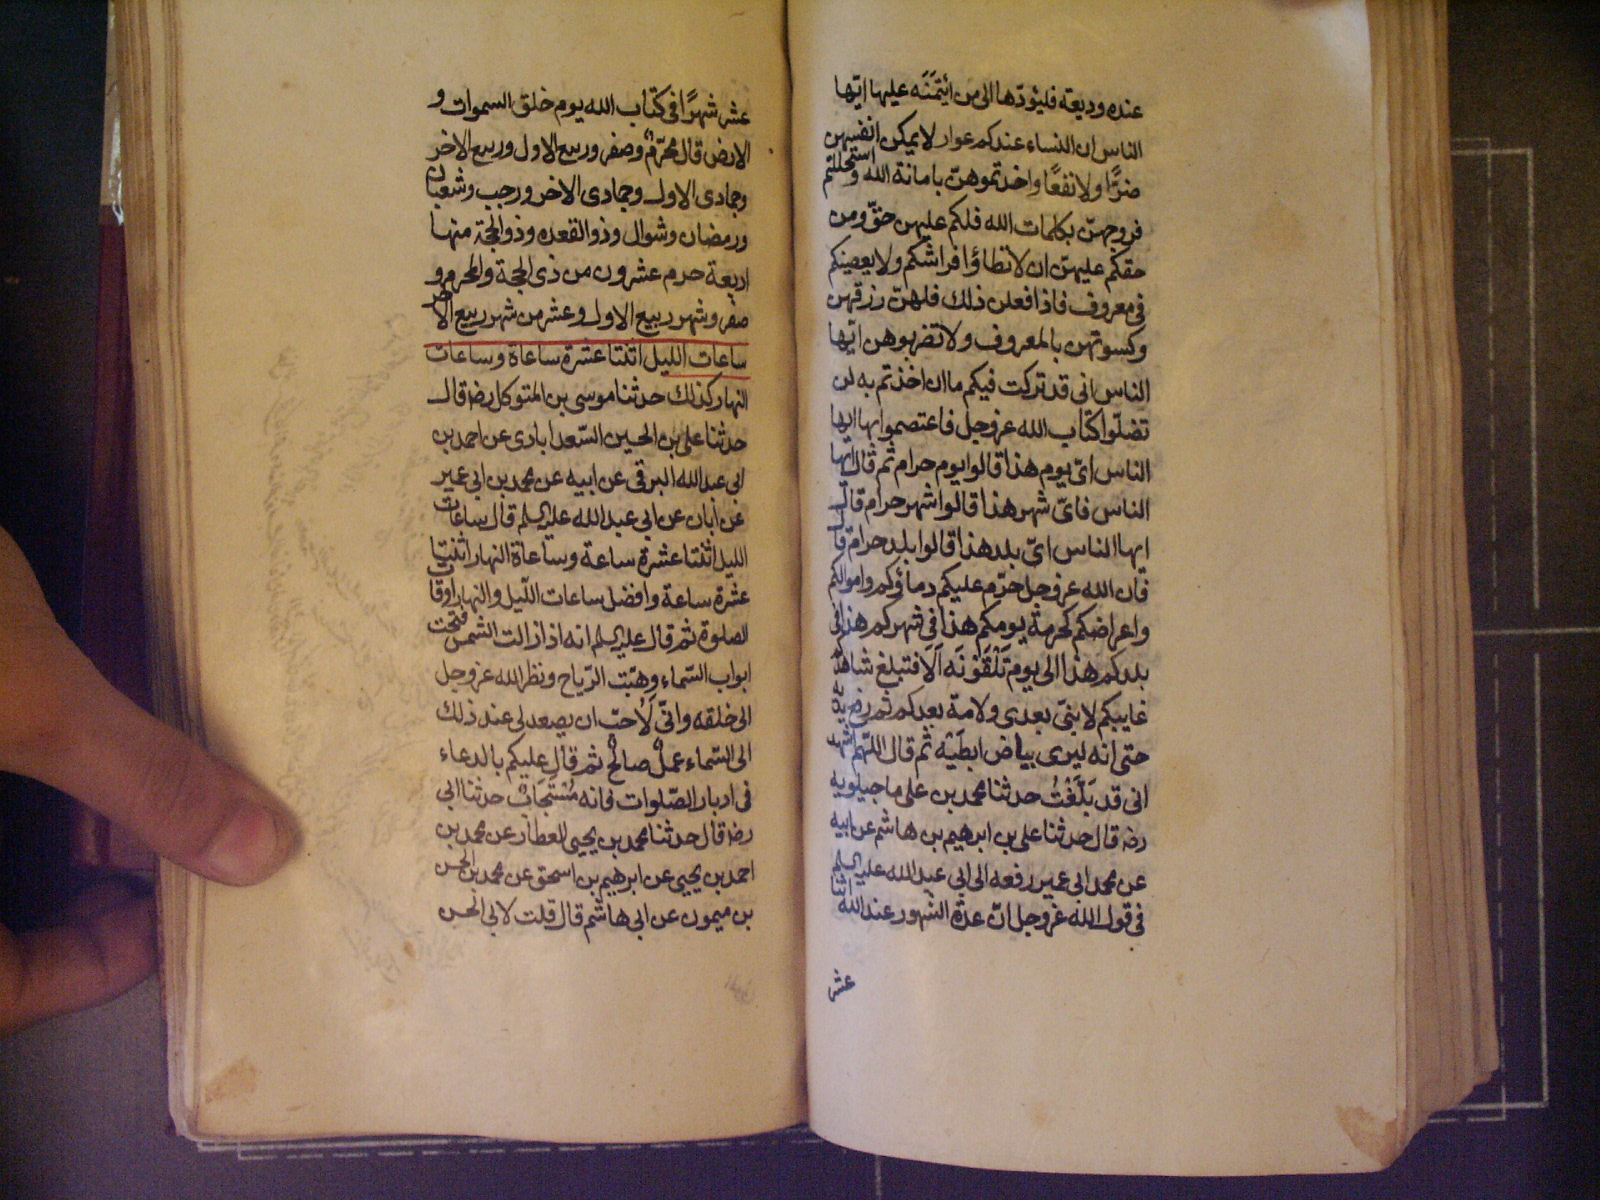 عنده وديعة فليؤدّها الى من ائتمنه عليها ايّها
الناس ان النساء عندكم عوار لا يمكن انفسهن
ضرًّا ولا نفعًا واخذتموهنّ بامانة الله واستحللتم
فروجهنّ بكلمات الله فلكم عليهن حقّ ومن
حقكم عليهنّ ان لا تطاؤا فراشكم ولا يعصينكم
فى معروف فاذا فعلن ذلك فلهنّ رزقهن
وكسوتهن بالمعروف ولا تضربوهن ايّها
الناس انى قد تركت فيكم ما ان اخذتم به لن
تضلّوا كتاب الله عز وجل فاعتصموا بها ايها
الناس اىّ يوم هذا قالوا يوم حرام ثم قال ايّها
الناس فاىّ شهر هذا قالوا شهر حرام قال
ايها الناس اىّ بلد هذا قالوا بلد حرام قال
فان الله عز وجل حرّم عليكم دماؤكم واموالكم
واعراضكم كحرمة يومكم هذا فى شهركم هذا فى
بلدكم هذا الى يوم تَلْقَوْنَه اَلَا فتبلغ شاهدكم
غايبكم لا بنىّ بعدى ولا مة بعدكم ثم رفع يديه
حتى انه ليرى بياض ابطَيْه ثم قال اللّهمّ اشهد
انى قد بَلَّغْتُ حدثنا محمد بن على ماجيلويه
رضه قال حدثنا على بن ابرهيم بن هاشم عن ابيه
عن محمد ابى عمير رفعه الى ابى عبد الله عليه السلم
فى قول الله عز وجل انّ عدّة الشهور عند الله اثنا
عشر
عشر شهرًا فى كتاب الله يوم خلق السموات و
الارض قال محرّم وصفر وربيع الاول وربيع الاخر
وجمادى الاول وجمادى الاخر ورجب وشعبان
ورمضان وشوال وذو القعده وذو الحجة منها
اربعة حرم عشرون من ذى الحجة والمحرم و
صفر وشهر ربيع الاول وعشر من شهر ربيع الاخر
ساعات الليل اثنتا عشرة ساعاة وساعات
النهار كذلك حدثنا موسى بن المتوكل رضه قال
حدثنا على بن الحسين السّعدابادى عن احمد بن
ابى عبد الله البرقى عن ابيه عن محمد بن ابى عمير
عن ابان عن ابى عبد الله عليه السلم قال ساعات
الليل اثنتا عشرة ساعة وساعاة النهار اثنتا
عشرة ساعة وافضل ساعات اللّيل والنهار اوقات
الصلوة ثم قال عليه السلم انه اذا زالت الشمس فتحت
ابواب السّماء وهبّت الرّياح ونظر الله عز وجل
الى خلقه وانّى لَاُحبّ ان يصعد لى عند ذلك
الى السّماء عملٌ صالحٌ ثم قال عليكم بالدعاء
فى ادبار الصّلوات فانه مُسْتَجَابٌ حدثنا ابى
رضه قال حدثنا محمد بن يحيى العطار عن محمد بن
احمد بن يحيى عن ابرهيم بن اسحق عن محمد بن الحسن
بن ميمون عن ابى هاشم قال قلت لابى الحسن